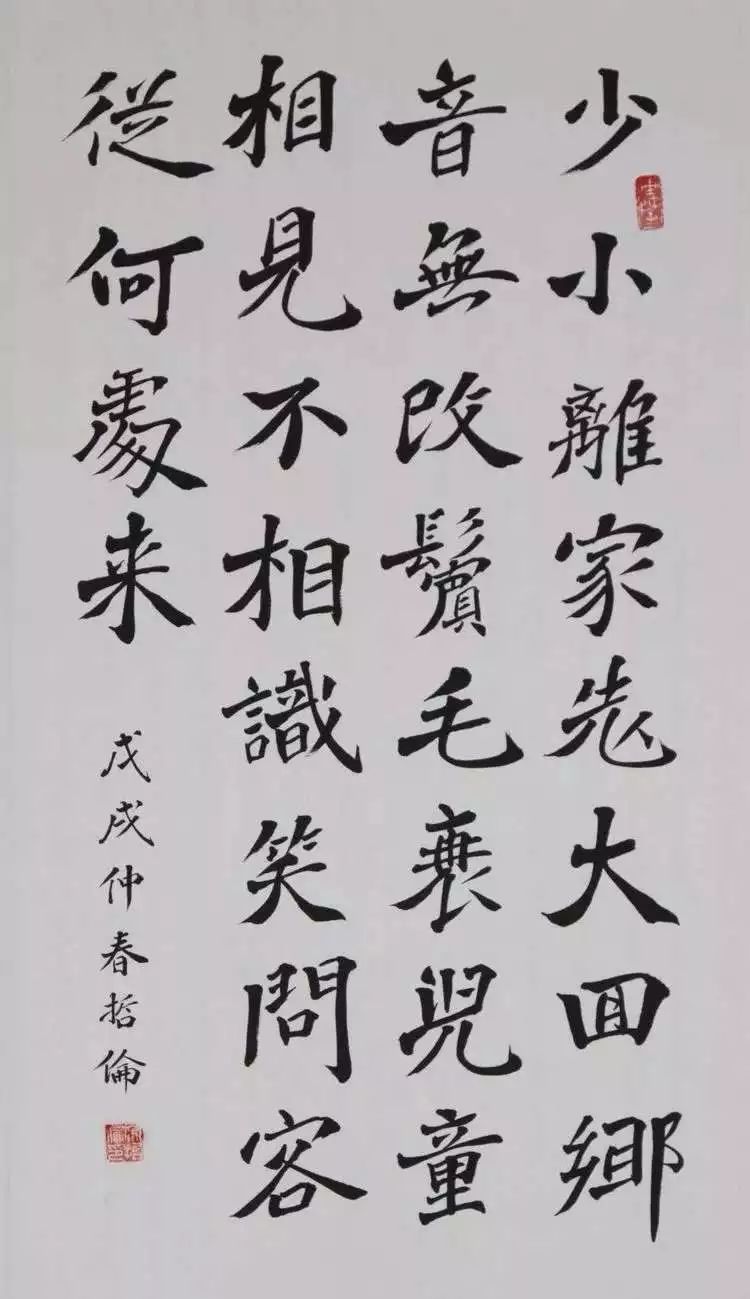 少小離家老大囬鄉
音無改鬢毛衰兒童
相見不相識笑問客
從何處来
戊戌仲春哲倫